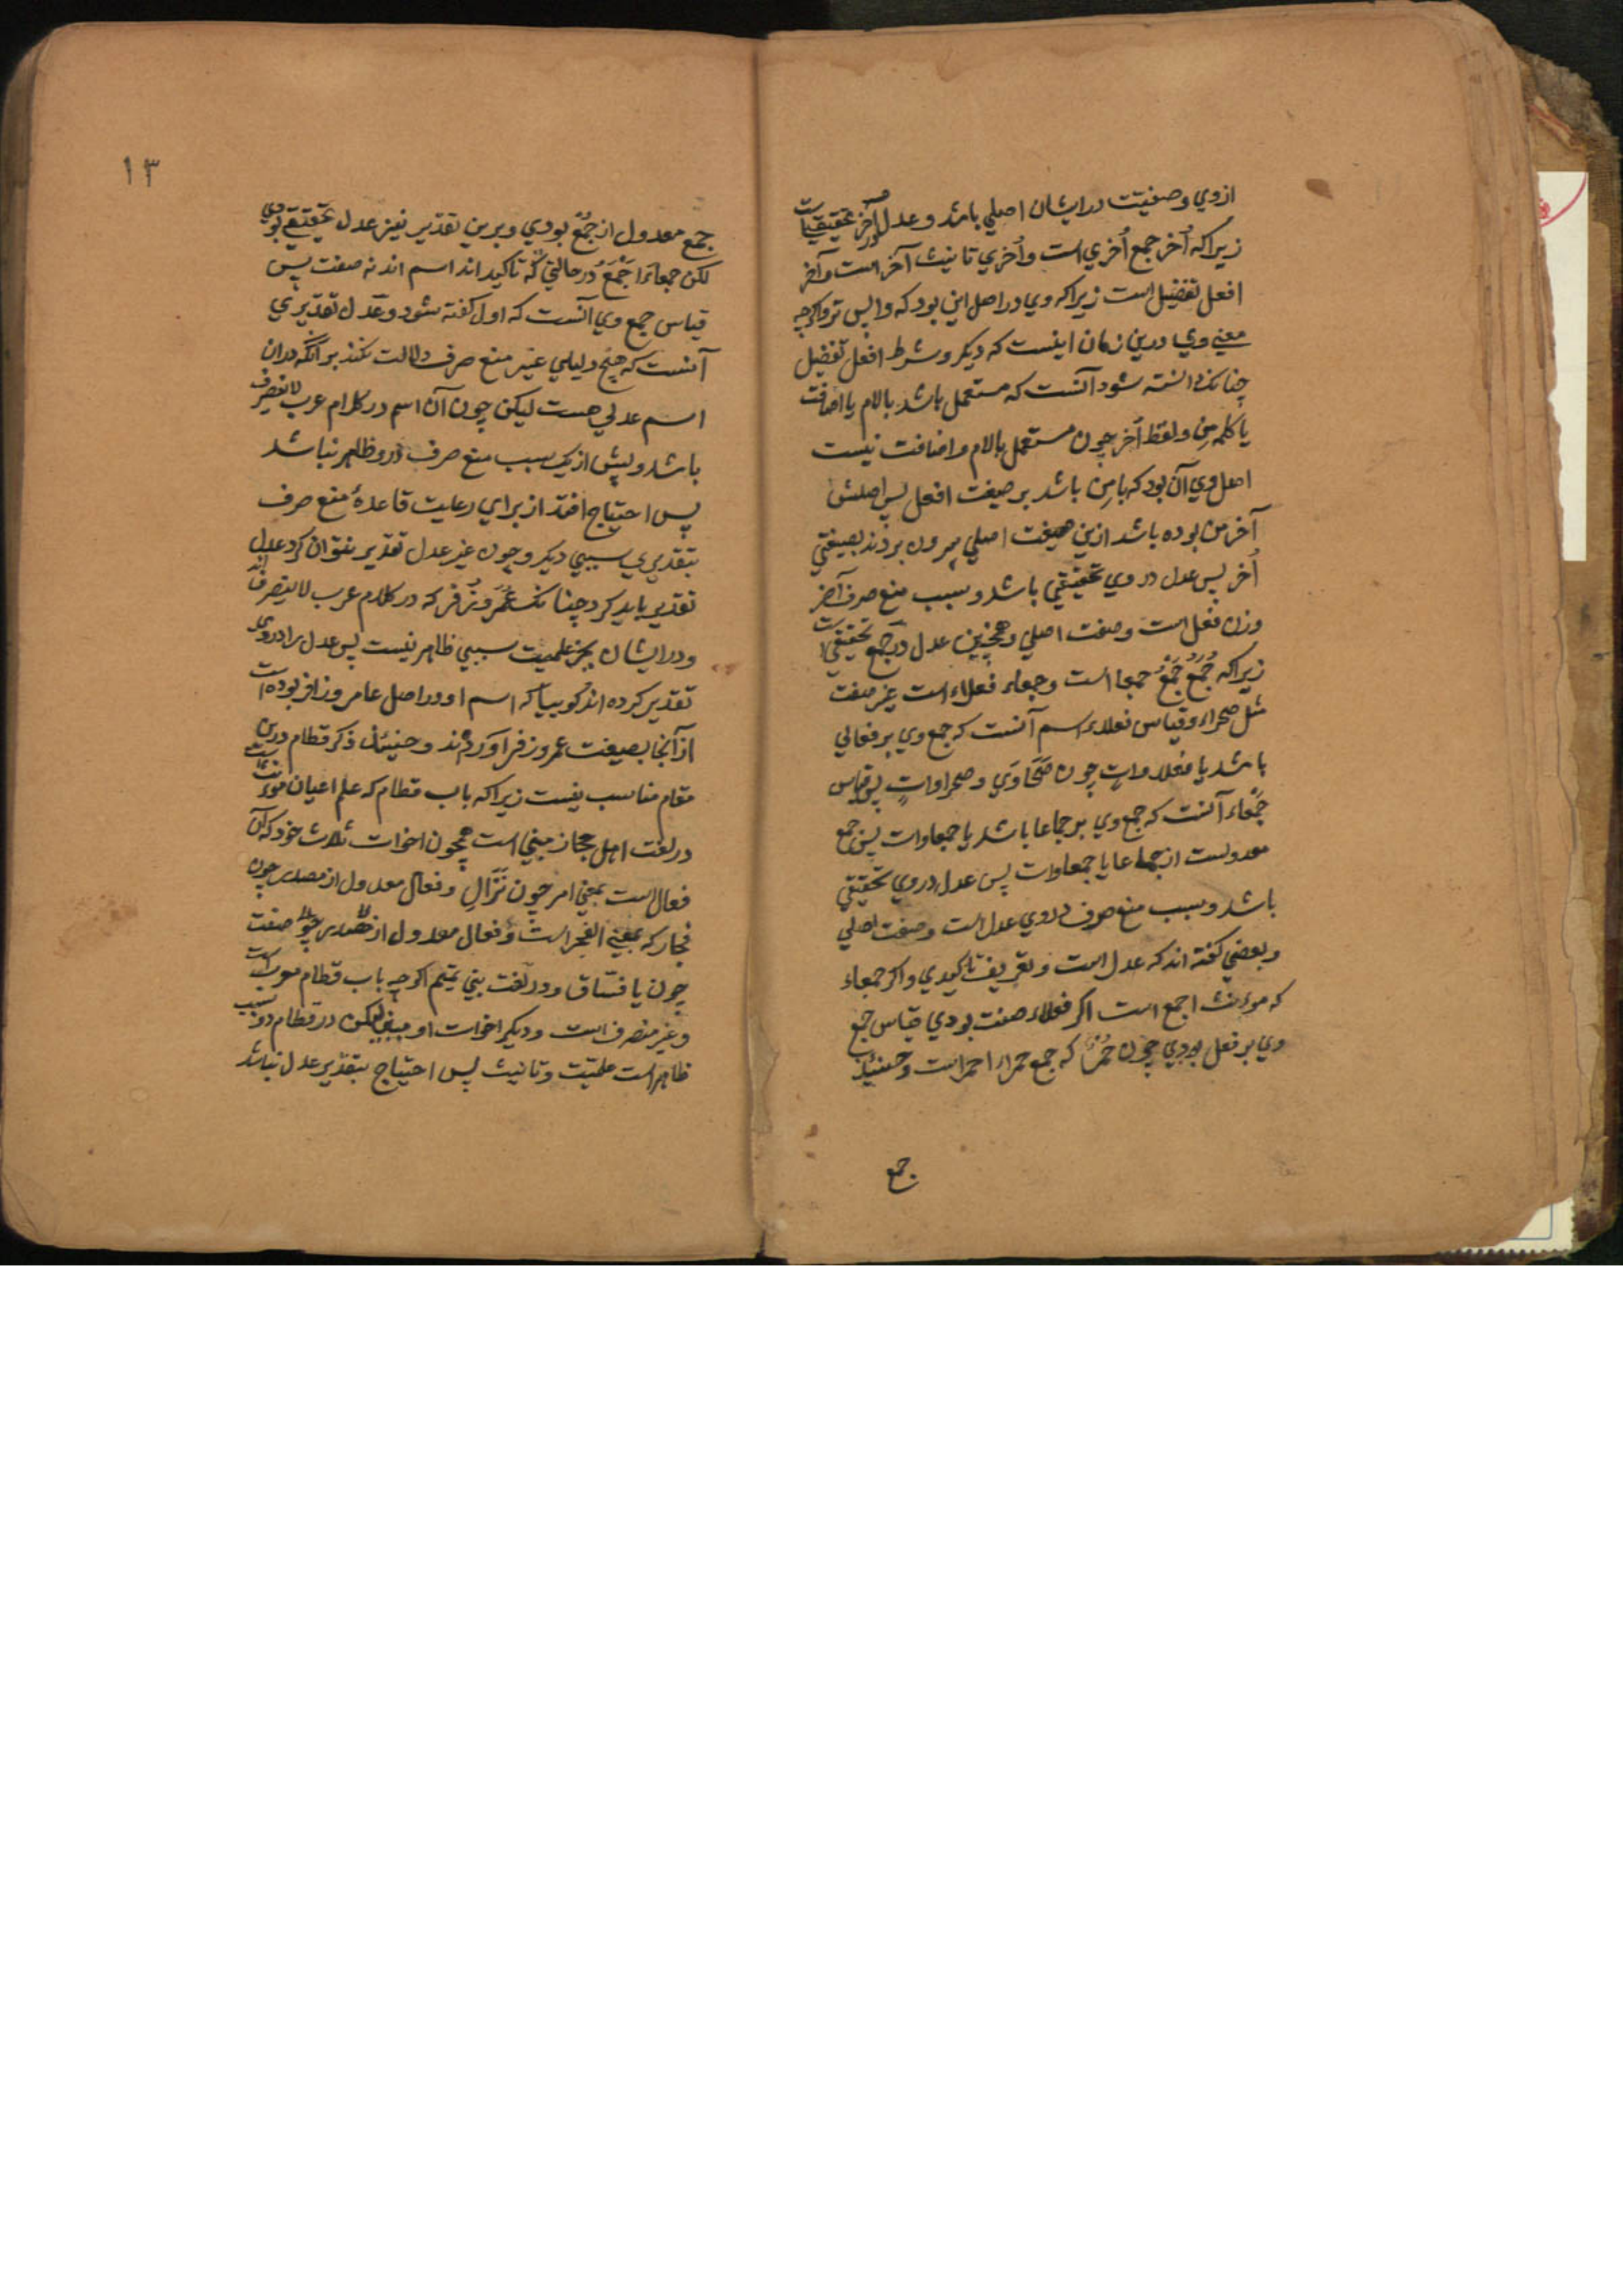 ازوي وصفیت در ایشان اصلي باشد و عدل در اُخر تحقیقیست
زیرا که اُخر جمع اُخري است و اُخري تانیث آخر است و آخر
افعل تفضیل است زیرا که وي در اصل این بود که واپس تر و اکرچه
معنے وي درین زمان اینست که دیکر و شرط افعل تفضیل
چنانکه دانسته شود آنست که مستعمل باشد بالام یا اضافت
یا کلمه مِن ولفظ اُخر چون مستعمل بالام و اضافت نیست
اصل وي آن بود که با مِن باشد بر صیغت افعل پس اصلش
آخر من بوده باشد ازین صیغت اصلي بیرون بردند بصیغتي
اُخر پس عدل در وي تحقیقي باشد و سبب منع صرف آخر
وزن فعل است وصفت اصلي و همچنین عدل در جُمَع تحقیقي است
زیرا که جُمَعُ جَمْعُ جمعا است و جمعاء فعلاء است غیر صفت
مثل صحراء و قیاس فعلاء اسم آنست که جمع وي بر فعالي
باشد یا فعلاوات چون صَحَاوَي و صحراوات پس قیاس
جَمْعاء آنست که جمع وي بر جماعا باشد یا جمعاوات پس جمع
معدولست از جماعا یا جمعاوات پس عدل در وي تحقیقي
باشد و سبب منع صرف در وي عدل است و صفت اصلي
و بعضي کفته اند که عدل است و تعریف تاکیدي و اکر جمعاء
که موءنث اجمع است اکر فعلاء صفت بودي قیاس جمع
وي بر فعل بودي چون حُمْرٌ که جمع حمراء احمر است و حینئذ
جمع
١٣
جمع معدول از جُمْعٌ بودي و برین تقدیر نیز عدل تحقیقے بودي
لکن جمعاءَ را جَمْعَ در حالتي که تاکید اند اسم اند نه صفت پس
قیاس جمع وي آنست که اول کفته شود و عدل تقدیري
آنست که هیچ دلیلي غیر منع صرف دلالت نکند بر آنکه دران
اسم عدلي هست لیکن چون آن اسم در کلام عرب لا ینصرف
باشد و پیش از یک سبب منع صرف درو ظاهر نباشد
پس احتیاج افتد از براي رعایت قاعدهٔ منع صرف
بتقدیري سببي دیکر و چون غیر عدل تقدیر نتوان کرد عدل
تقدیر باید کرد چنانکه عُمَرُ و زُفَر که در کلام عرب لا ینصرف اند
و در ایشان بجز علمیت سببي ظاهر نیست پس عدل را در وي
تقدیر کرده اند کوییا که اسم او در اصل عامر و زافر بوده است
از آنجا بصیغت عمر و زفر آورده اند و حینئذ ذکر قطام درین
مقام مناسب نیست زیرا که باب قطام که علم اعیان موءنث است
در لغت اهل حجاز مبني است همچون اخوات ثلاث خود که آن
فعال است بمعني امر چون نَزَالِ و فعال معدول از مصدر چون
فجار که بمعني الفجر است و فعال معدول از مصدر چون صفت
چون یا فسّاق و در لغت بني تمیم اکرچه باب قطام معرب است
و غیر منصرف است و دیکر اخوات او مبني لیکن در قطام دو سبب
ظاهر است علمیّت و تانیث پس احتیاج بتقدیر عدل نباشد